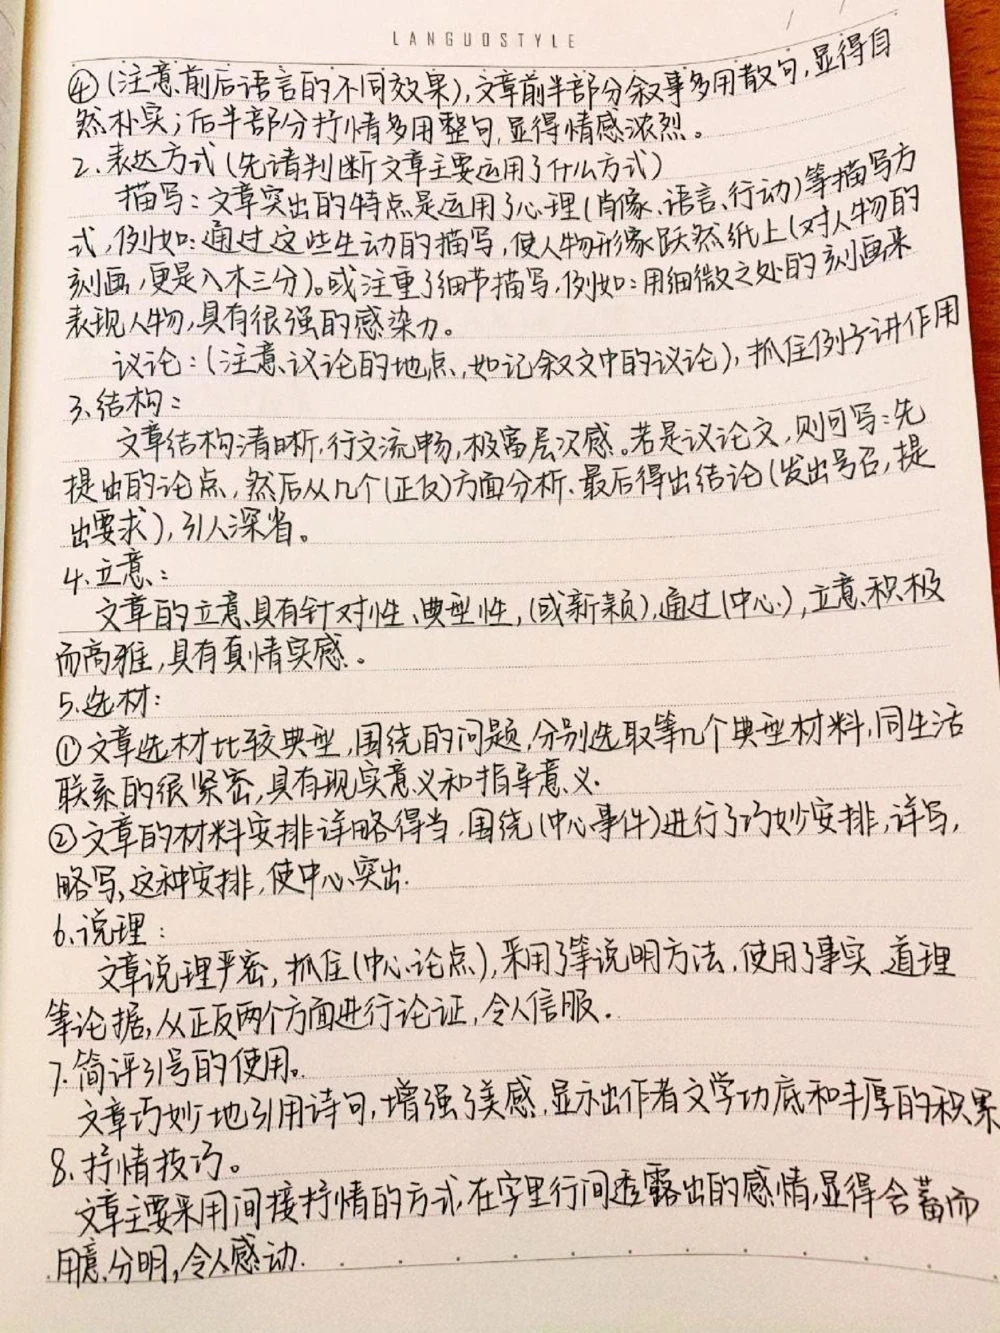 LANGUOSTYLE
④(注意前后语言的不同效果),文章前半部分叙事多用散句,显得自
然朴实;后半部分抒情多用整句,显得情感浓烈。
2.表达方式(先请判断文章主要运用了什么方式)
描写:文章突出的特点是运用了心理(肖像、语言、行动)等描写方
式,例如:通过这些生动的描写,使人物形象跃然纸上(对人物的
刻画,更是入木三分)。或注重了细节描写,例如:用细微之处的刻画来
表现人物,具有很强的感染力。
议论:(注意议论的地点,如记叙文中的议论),抓住例子讲作用
3.结构:
文章结构清晰,行文流畅,极富层次感。若是议论文,则可写:先
提出的论点,然后从几个(正反)方面分析、最后得出结论(发出号召,提
出要求),引人深省。
4.立意:
文章的立意具有针对性、典型性,(或新颖),通过(中心),立意积极
而高雅,具有真情实感。
5.选材:
①文章选材比较典型,围绕的问题,分别选取等几个典型材料,同生活
联系的很紧密,具有现实意义和指导意义.
②文章的材料安排详略得当,围绕(中心事件)进行了巧妙安排,详写,
略写,这种安排,使中心突出.
6.说理:
文章说理严密,抓住(中心论点),采用了等说明方法,使用了事实、道理
等论据,从正反两个方面进行论证,令人信服.
7.简评引号的使用。
文章巧妙地引用诗句,增强了美感,显示出作者文学功底和丰厚的积累
8.抒情技巧。
文章主要采用间接抒情的方式,在字里行间透露出的感情,显得含蓄而
用意分明,令人感动.